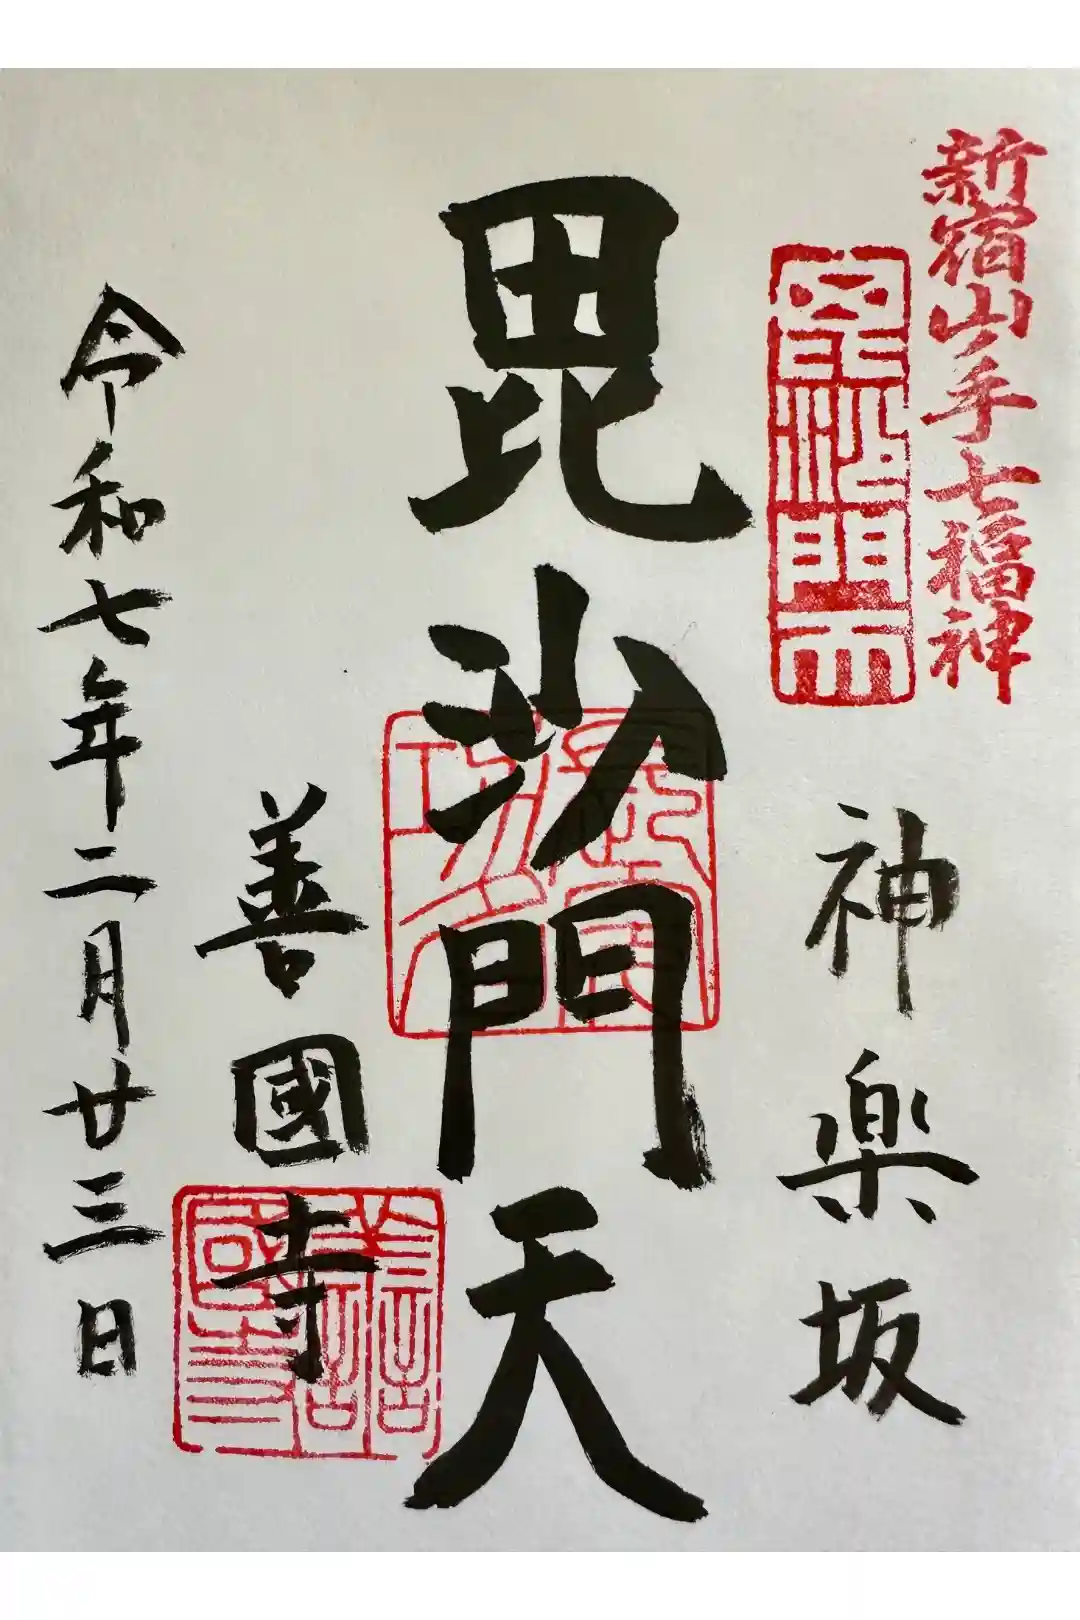 新宿山ノ手七福神
毘沙門天
神楽坂
毘沙門天
善國寺
善國寺
令和七年二月廿三日